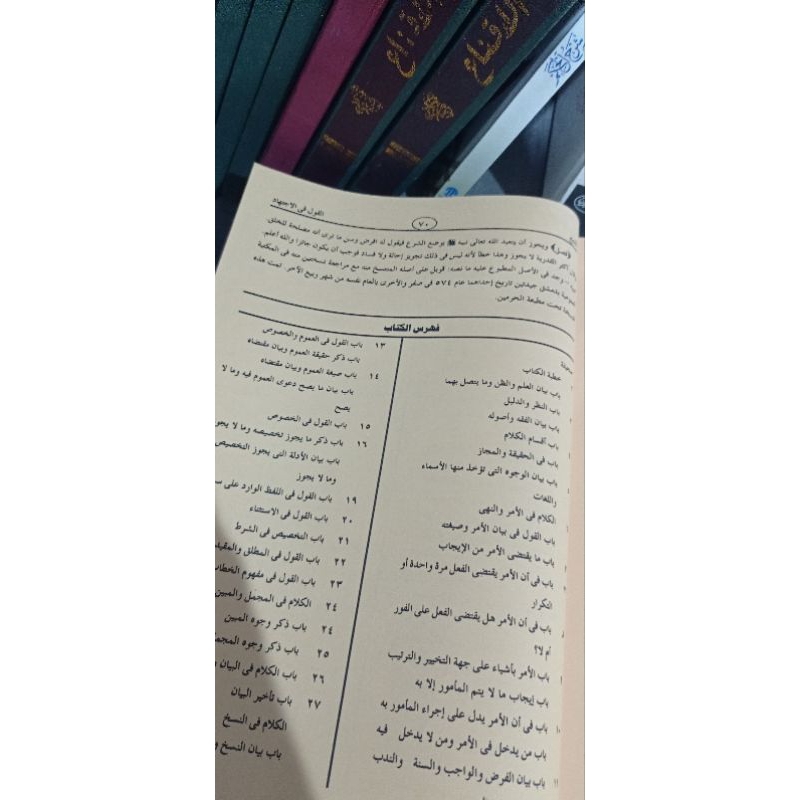 الإقناع
القول فى الاجتهاد
٧٠
(فصل) ويجوز أن يتعبد الله تعالى نبيه ﷺ بوضع الشرع فيقول له افرض وسن ما ترى أنه مصلحة للخلق.
أكثر القدرية لا يجوز وهذا خطأ لأنه ليس فى ذلك تجويز إحالة ولا فساد فوجب أن يكون جائزا والله أعلم.
وجد فى الأصل المطبوع عليه ما نصه: قوبل على أصله المنتسخ منه مع مراجعة نسختين منه فى المكتبة
بدمشق جيدتين تاريخ إحداهما عام ٥٧٤ فى صفر والأخرى بالعام نفسه من شهر ربيع الآخر. تمت هذه
تحت مطبعة الحرمين.
فهرس الكتاب
صحيفة
خطبة الكتاب
باب بيان العلم والظن وما يتصل بهما
باب النظر والدليل
باب بيان الفقه وأصوله
باب أقسام الكلام
باب فى الحقيقة والمجاز
باب بيان الوجوه التى تؤخذ منها الأسماء
واللغات
الكلام فى الأمر والنهى
باب القول فى بيان الأمر وصيغته
باب ما يقتضى الأمر من الإيجاب
باب فى أن الأمر يقتضى الفعل مرة واحدة أو
التكرار
باب فى أن الأمر هل يقتضى الفعل على الفور
أم لا؟
باب الأمر بأشياء على جهة التخيير والترتيب
باب إيجاب ما لا يتم المأمور إلا به
١٠ باب فى أن الأمر يدل على إجراء المأمور به
باب من يدخل فى الأمر ومن لا يدخل فيه
١١ باب بيان الفرض والواجب والسنة والندب
١٣ باب القول فى العموم والخصوص
باب ذكر حقيقة العموم وبيان مقتضاه
١٤ باب صيغة العموم وبيان مقتضاه
باب بيان ما يصح دعوى العموم فيه وما لا
يصح
١٥ باب القول فى الخصوص
١٦ باب ذكر ما يجوز تخصيصه وما لا يجو
باب بيان الأدلة التى يجوز التخصيص
وما لا يجوز
١٩ باب القول فى اللفظ الوارد على س
٢٠ باب القول فى الاستثناء
٢١ باب التخصيص فى الشرط
٢٢ باب القول فى المطلق والمقيد
٢٣ باب القول فى مفهوم الخطاب
٢٤ الكلام فى المجمل والمبين
٢٤ باب ذكر وجوه المبين
٢٥ باب ذكر وجوه المجمل
٢٦ باب الكلام فى البيان و
٢٧ باب تأخير البيان
الكلام فى النسخ
باب بيان النسخ و